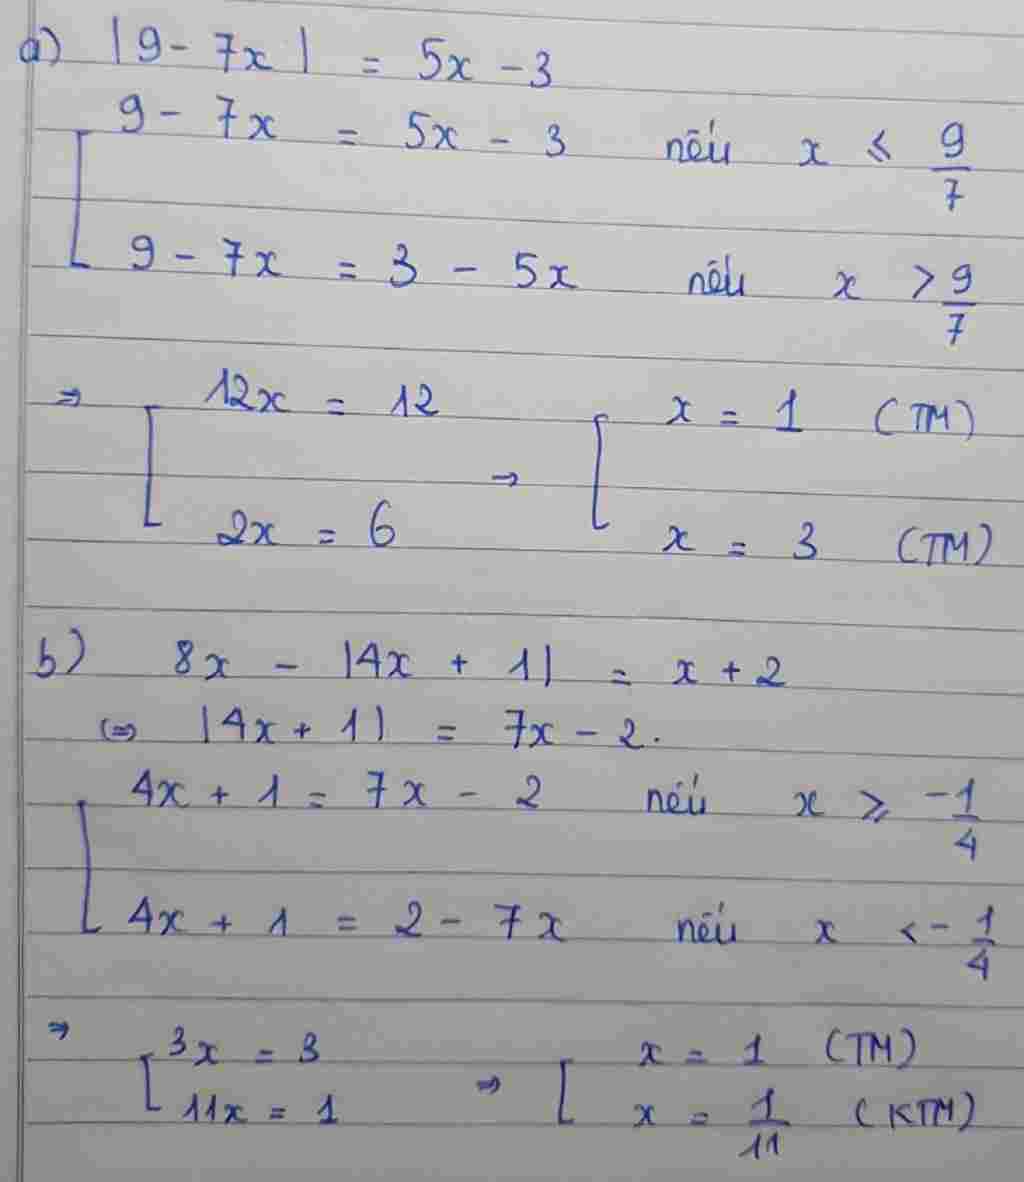 a) |9 - 7x| = 5x - 3
9 - 7x = 5x - 3 nếu x ≤ 9/7
9 - 7x = 3 - 5x nếu x > 9/7
⇒ 12x = 12 → x = 1 (TM)
2x = 6 x = 3 (TM)
b) 8x - |4x + 1| = x + 2
⇔ |4x + 1| = 7x - 2.
4x + 1 = 7x - 2 nếu x ≥ -1/4
4x + 1 = 2 - 7x nếu x < -1/4
⇒ 3x = 3 ⇒ x = 1 (TM)
11x = 1 x = 1/11 (KTM)